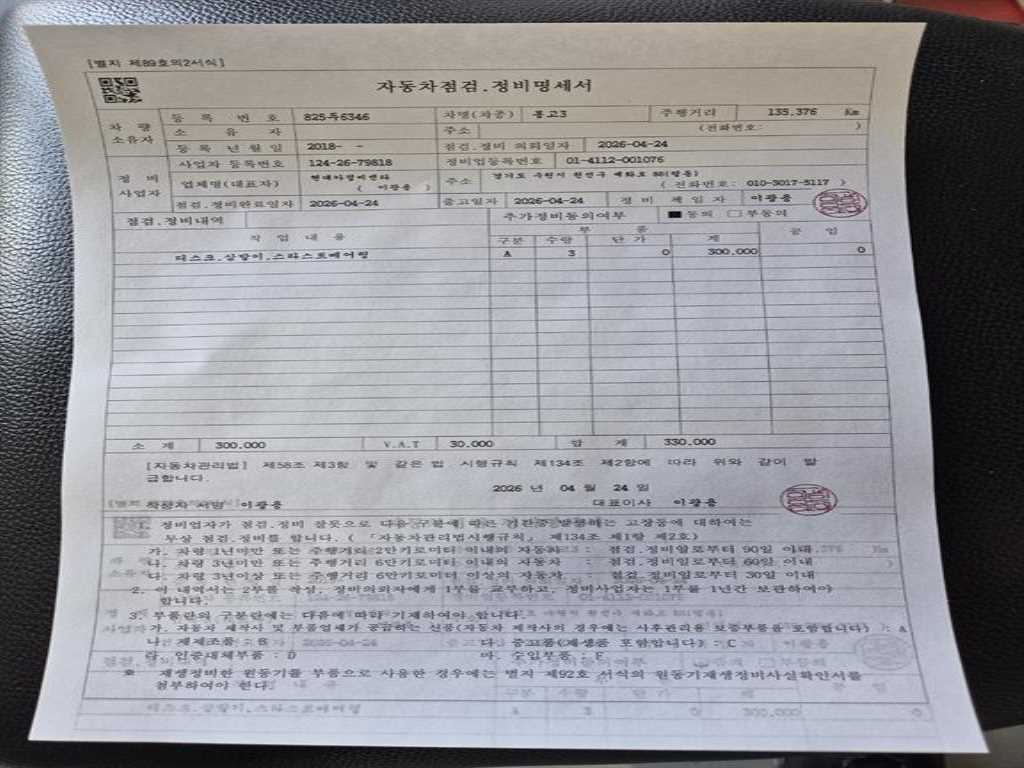 [별지 제89호의2서식]
자동차점검.정비명세서
차 량 소유자
등 록 번 호 825두6346 차명(차종) 봉고3 주행거리 135,376 Km
소 유 자 주소 (전화번호: )
등 록 년 월 일 2018- - 점검.정비 의뢰일자 2026-04-24
정 비 사업자
사업자 등록번호 124-26-79818 정비업등록번호 01-4112-001076
업체명(대표자) ( 이광용 ) 주소 경기도 수원시 권선구 ( 전화번호: 010-3017-5117 )
점검.정비완료일자 2026-04-24 출고일자 2026-04-24 정 비 책 임 자 이광용
점검.정비내역 추가정비동의여부 ■ 동의 □ 부동의
작 업 내 용 부 품 공 임
구분 수량 단 가 계
A 3 0 300,000 0
소 계 300,000 V.A.T 30,000 합 계 330,000
[자동차관리법] 제58조 제3항 및 같은 법 시행규칙 제134조 제2항에 따라 위와 같이 발
급합니다.
2026 년 04 월 24 일
작성자 서명 이광용 대표이사 이광용
정비업자가 점검.정비 잘못으로 다음 구분에 따른 기간중 발생하는 고장등에 대하여는
무상 점검.정비를 합니다. ( 「자동차관리법시행규칙」 제134조 제1항 제2호)
가. 차령 1년미만 또는 주행거리 2만키로미터 이내의 자동차 : 점검.정비일로부터 90일 이내
나. 차령 3년미만 또는 주행거리 6만키로미터 이내의 자동차 : 점검.정비일로부터 60일 이내
다. 차령 3년이상 또는 주행거리 6만키로미터 이상의 자동차 : 점검.정비일로부터 30일 이내
2. 이 내역서는 2부를 작성, 정비의뢰자에게 1부를 교부하고, 정비사업자는 1부를 1년간 보관하여야
합니다.
3. 부품란의 구분란에는 다음에 따라 기재하여야 합니다.
가. 자동차 제작사 및 부품업체가 공급하는 신품(자동차 제작사의 경우에는 사후관리용 보증부품을 포함합니다) : A
나. 재제조품 : B 다. 중고품(재생품 포함합니다) : C
라. 인증대체부품 : D 마. 수입부품 : F
※ 재생정비한 원동기를 부품으로 사용한 경우에는 별지 제92호 서식의 원동기재생정비사실확인서를
첨부하여야 한다.